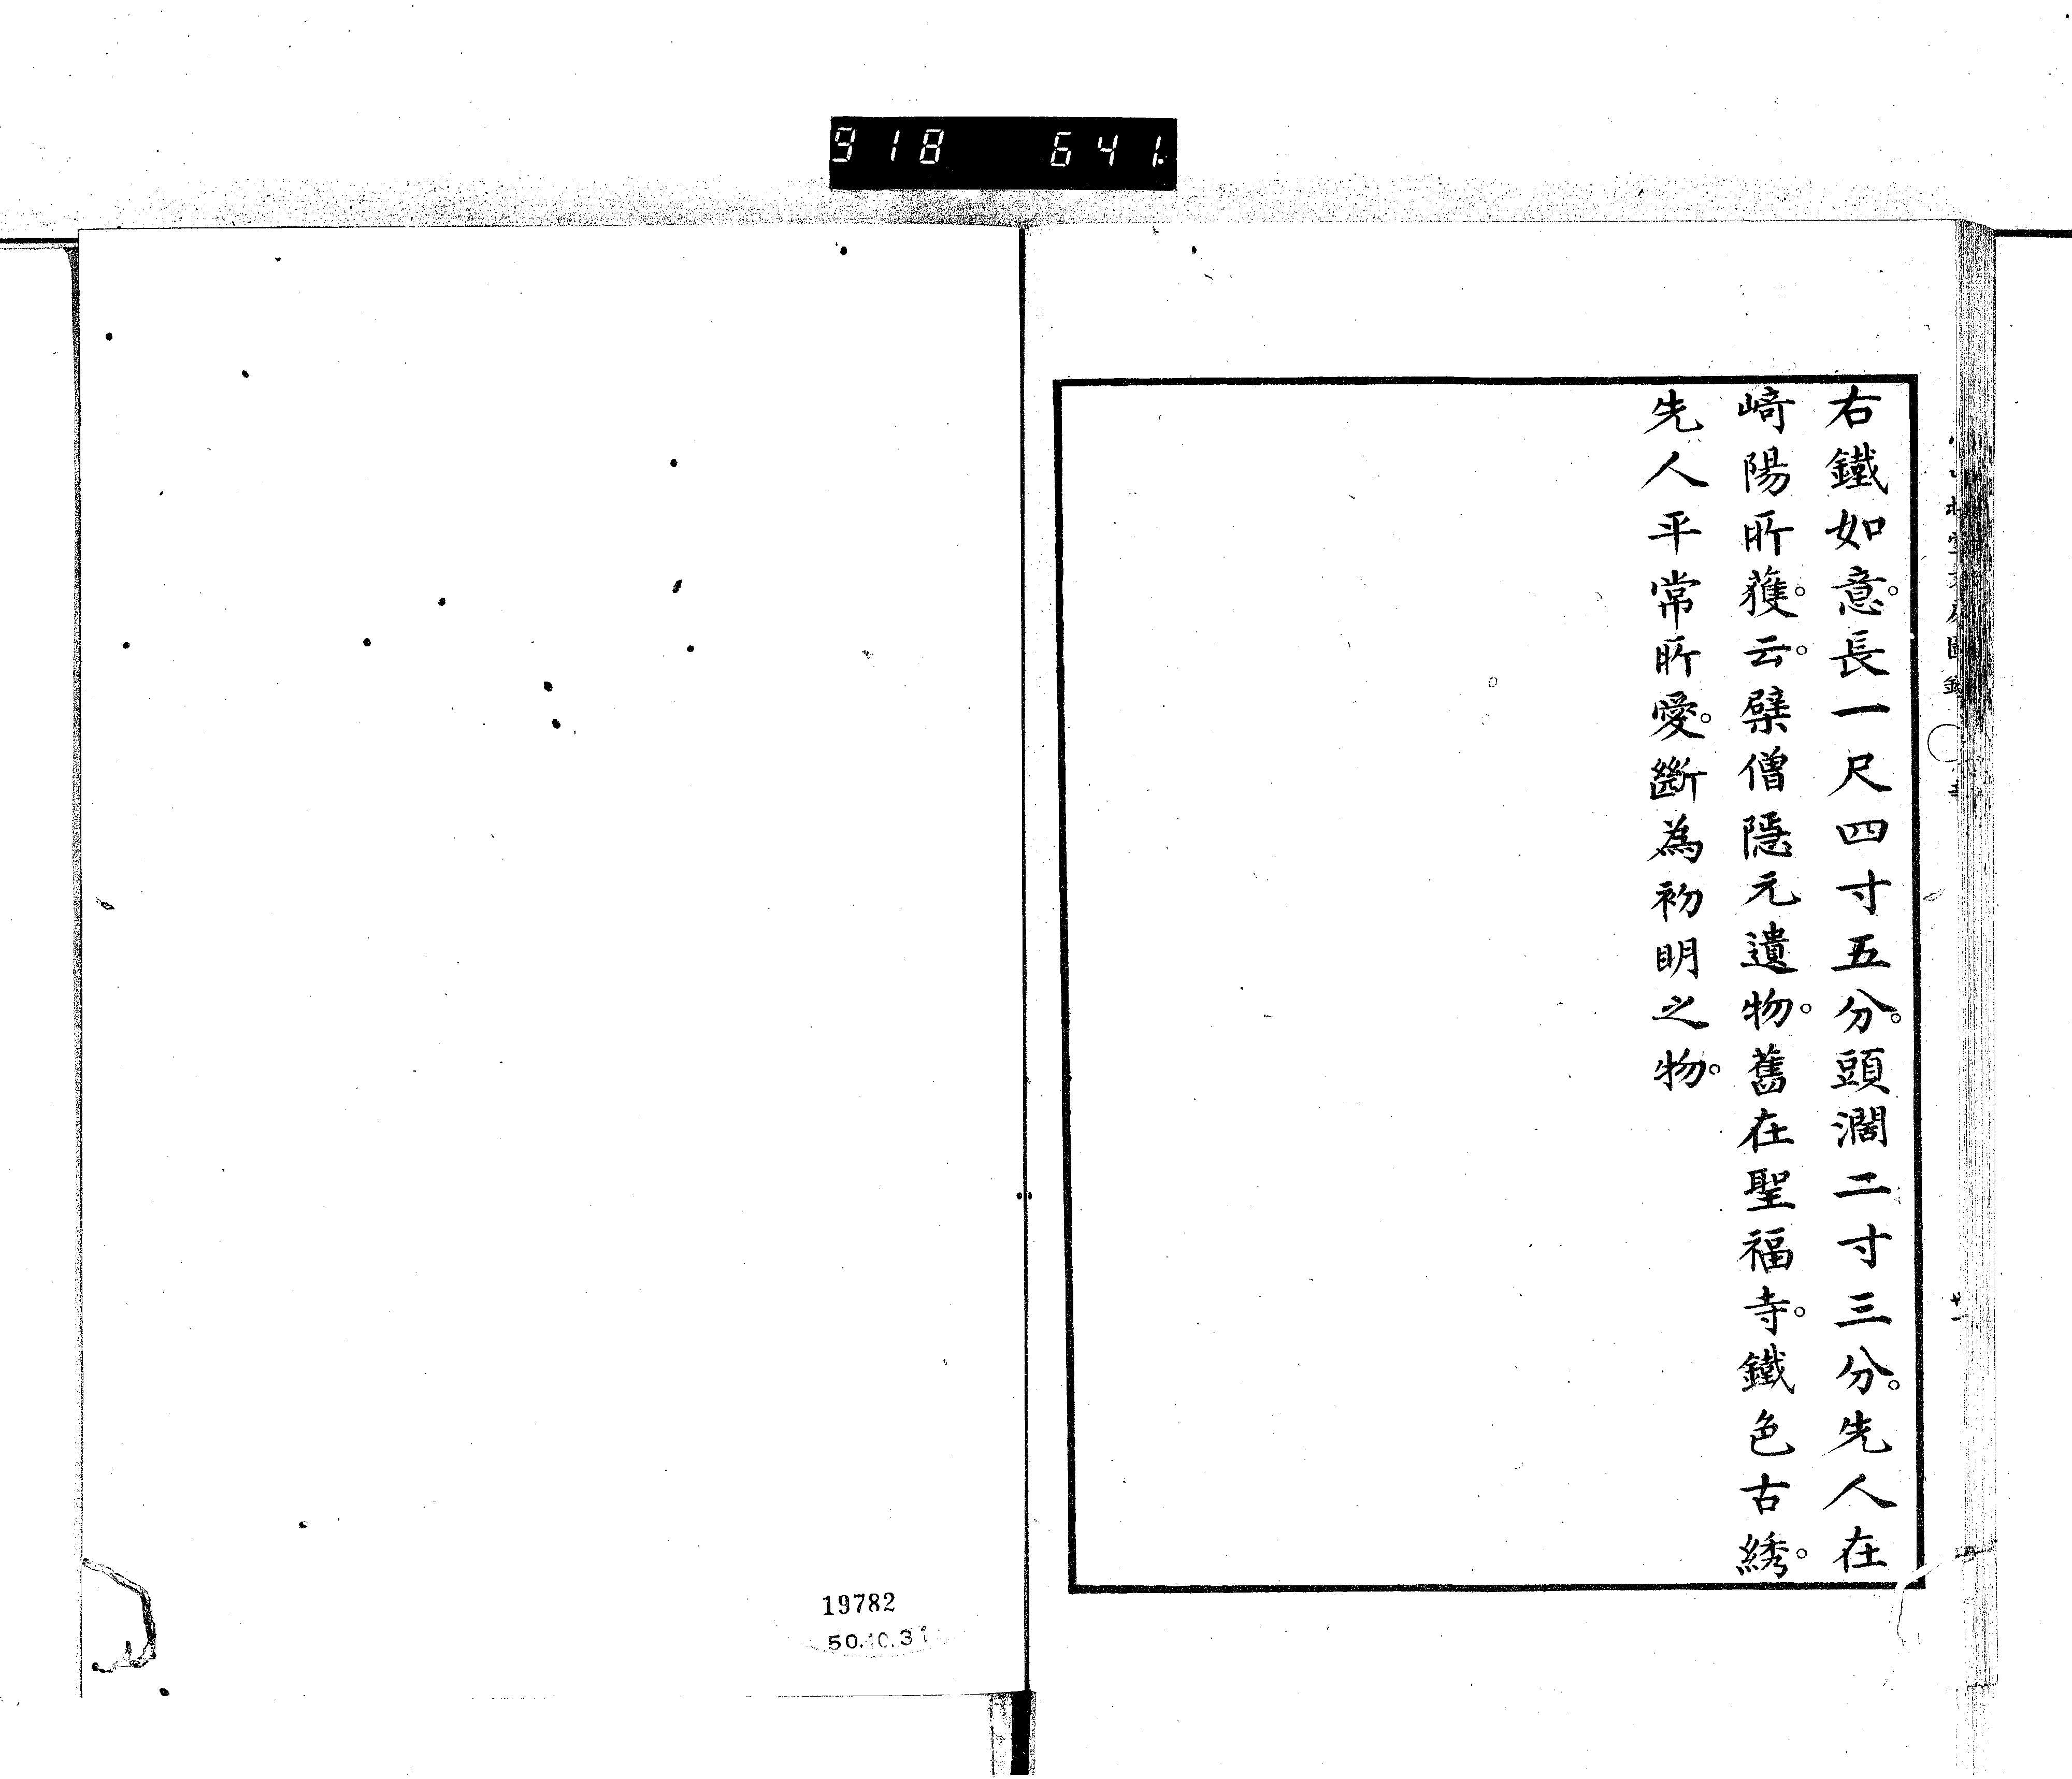 918 641.
右鐵如意。長一尺四寸五分。頭濶二寸三分。先人在
﨑陽所獲。云。檗僧隱元遺物。舊在聖福寺。鐵色古綉。
先人平常所愛。斷為初明之物。
19782
50.10.31